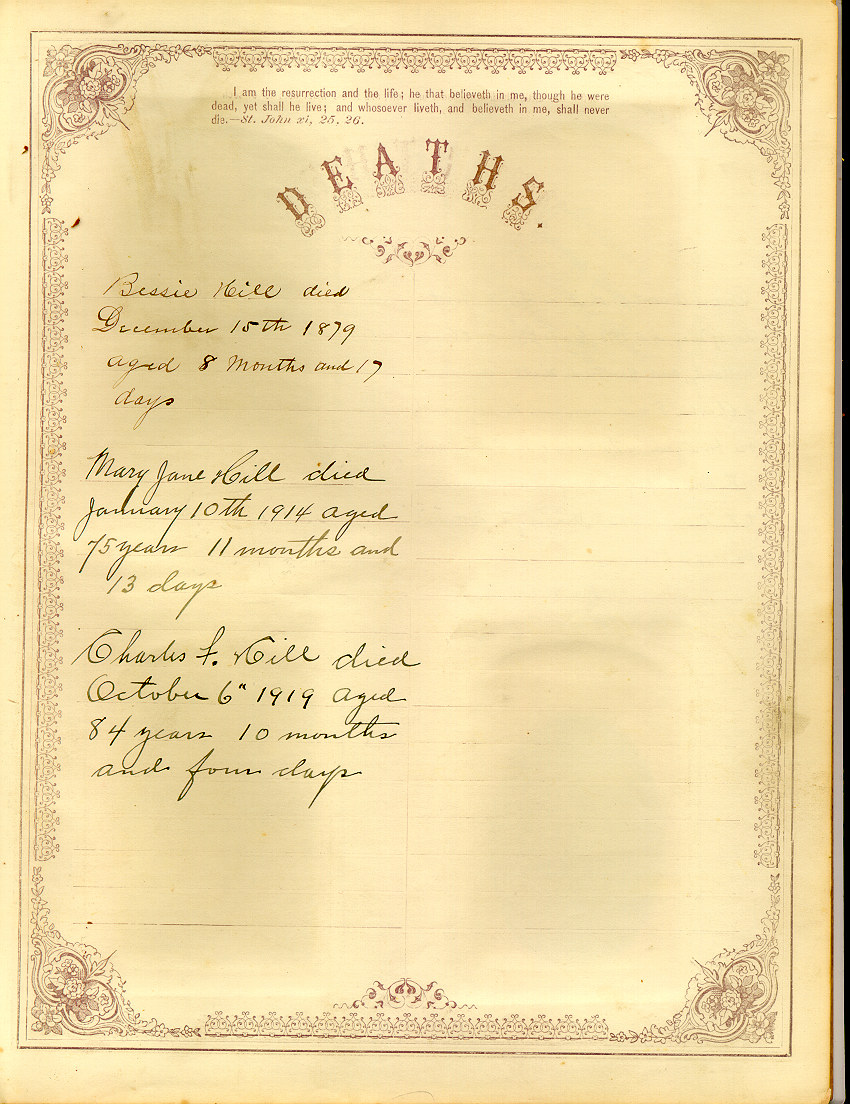 I am the resurrection and the life; he that believeth in me, though he were
dead, yet shall he live; and whosoever liveth, and believeth in me, shall never
die.—St. John xi, 25, 26.
DEATHS.
Bessie Hill died
December 15th 1879
aged 8 Months and 17
days
Mary Jane Hill died
January 10th 1914 aged
75 years 11 months and
13 days
Charles F. Hill died
October 6" 1919 aged
84 years 10 months
and four days